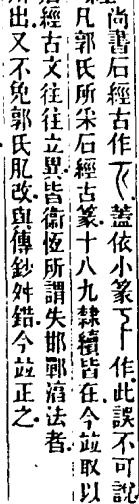 尚書石經古作蓋依小篆作此誤不可說
凡郭氏所采石經古篆十八九隸續皆在今竝取以
經古文往往立異皆衞恆所謂失邯鄲淳法者
出又不免郭氏肊改與傳鈔舛錯今竝正之